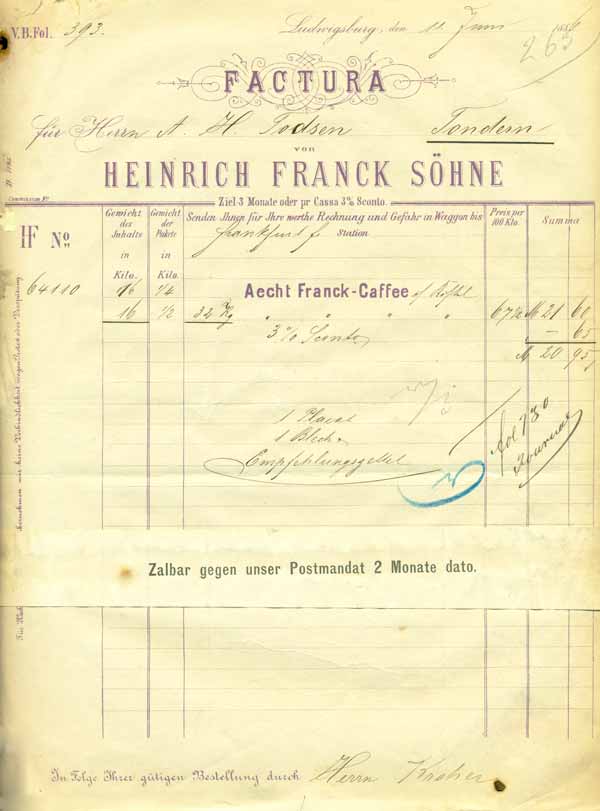 V.B.Fol. 393.
Ludwigsburg, den 11 Juni
265
FACTURA
für Herrn A. H. Todsen Tondern
von
HEINRICH FRANCK SÖHNE
Ziel 3 Monate oder pr Cassa 3% Sconto.
HF No
Gewicht des Inhalts in Kilo.
Gewicht der Pakete in Kilo.
Senden Ihnen für Ihre werthe Rechnung und Gefahr in Waggon bis
Frankfurt Station
Preis per 100 Klo.
Summa
64110 16 1/4 Aecht Franck-Caffee
16 1/2 32 Kg " " " " 67½ M 21 60
3% Sconto — 65
M 20 95
1 Placat
1 Blech
Empfehlungszettel
fol 730
Journal
Zalbar gegen unser Postmandat 2 Monate dato.
In Folge Ihrer gütigen Bestellung durch Herrn